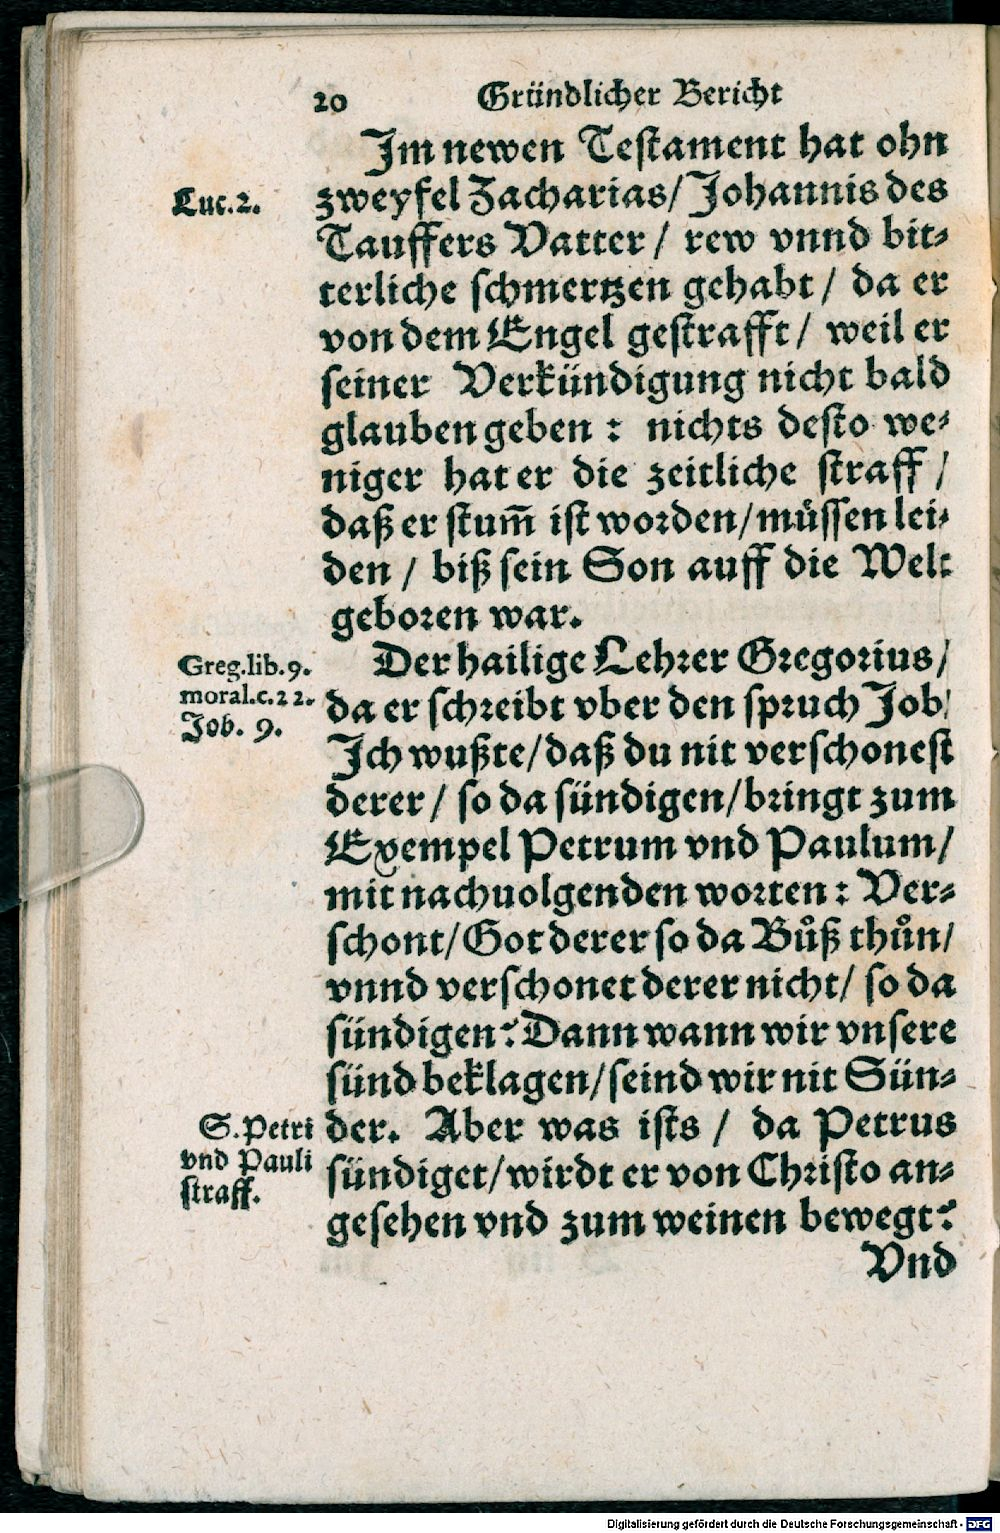 20 Gründlicher Bericht
Im newen Testament hat ohn
Luc.2.
zweyfel Zacharias/ Johannis des
Tauffers Vatter/ rew vnnd bit⸗
terliche schmertzen gehabt/ da er
von dem Engel gestrafft/ weil er
seiner Verkündigung nicht bald
glauben geben: nichts desto we⸗
niger hat er die zeitliche straff/
daß er stum̃ ist worden/ müssen lei⸗
den/ biß sein Son auff die Welt
geboren war.
Greg.lib.9.
moral.c.22.
Job. 9.
Der hailige Lehrer Gregorius/
da er schreibt vber den spruch Job/
Ich wußte/ daß du nit verschonest
derer/ so da sündigen/ bringt zum
Exempel Petrum vnd Paulum/
mit nachuolgenden worten: Ver⸗
schont/ Got derer so da Bůß thůn/
vnnd verschonet derer nicht/ so da
sündigen? Dann wann wir vnsere
sünd beklagen/ seind wir nit Sün⸗
S. Petri
vnd Pauli
straff.
der. Aber was ists/ da Petrus
sündiget/ wirdt er von Christo an⸗
gesehen vnd zum weinen bewegt?
Vnd
Digitalisierung gefördert durch die Deutsche Forschungsgemeinschaft - DFG